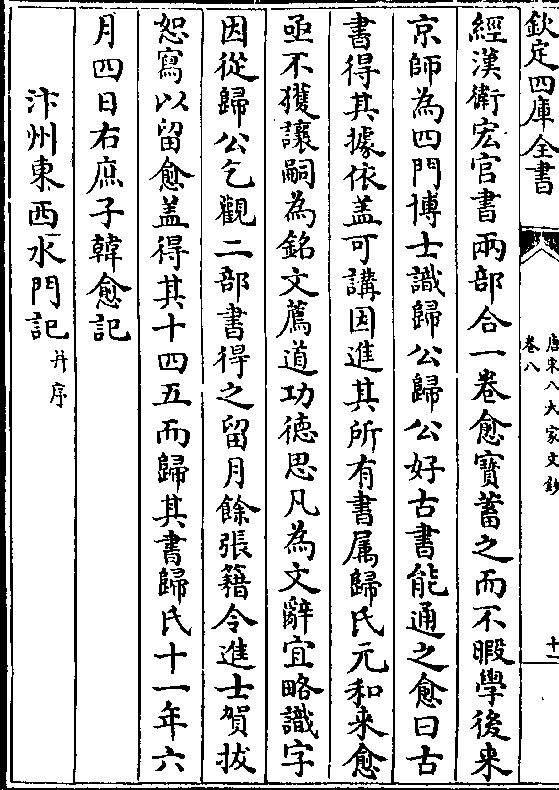 欽定四庫全書
唐宋八大家文鈔
卷八
十一
經漢衛宏官書兩部合一卷愈寶蓄之而不暇學後来
京師為四門博士識歸公歸公好古書能通之愈曰古
書得其據依盖可講因進其所有書屬歸氏元和来愈
亟不獲讓嗣為銘文薦道功徳思凡為文辭宜略識字
因從歸公乞觀二部書得之留月餘張籍令進士賀拔
恕寫以留愈盖得其十四五而歸其書歸氏十一年六
月四日右庶子韓愈記
汴州東西水門記并序